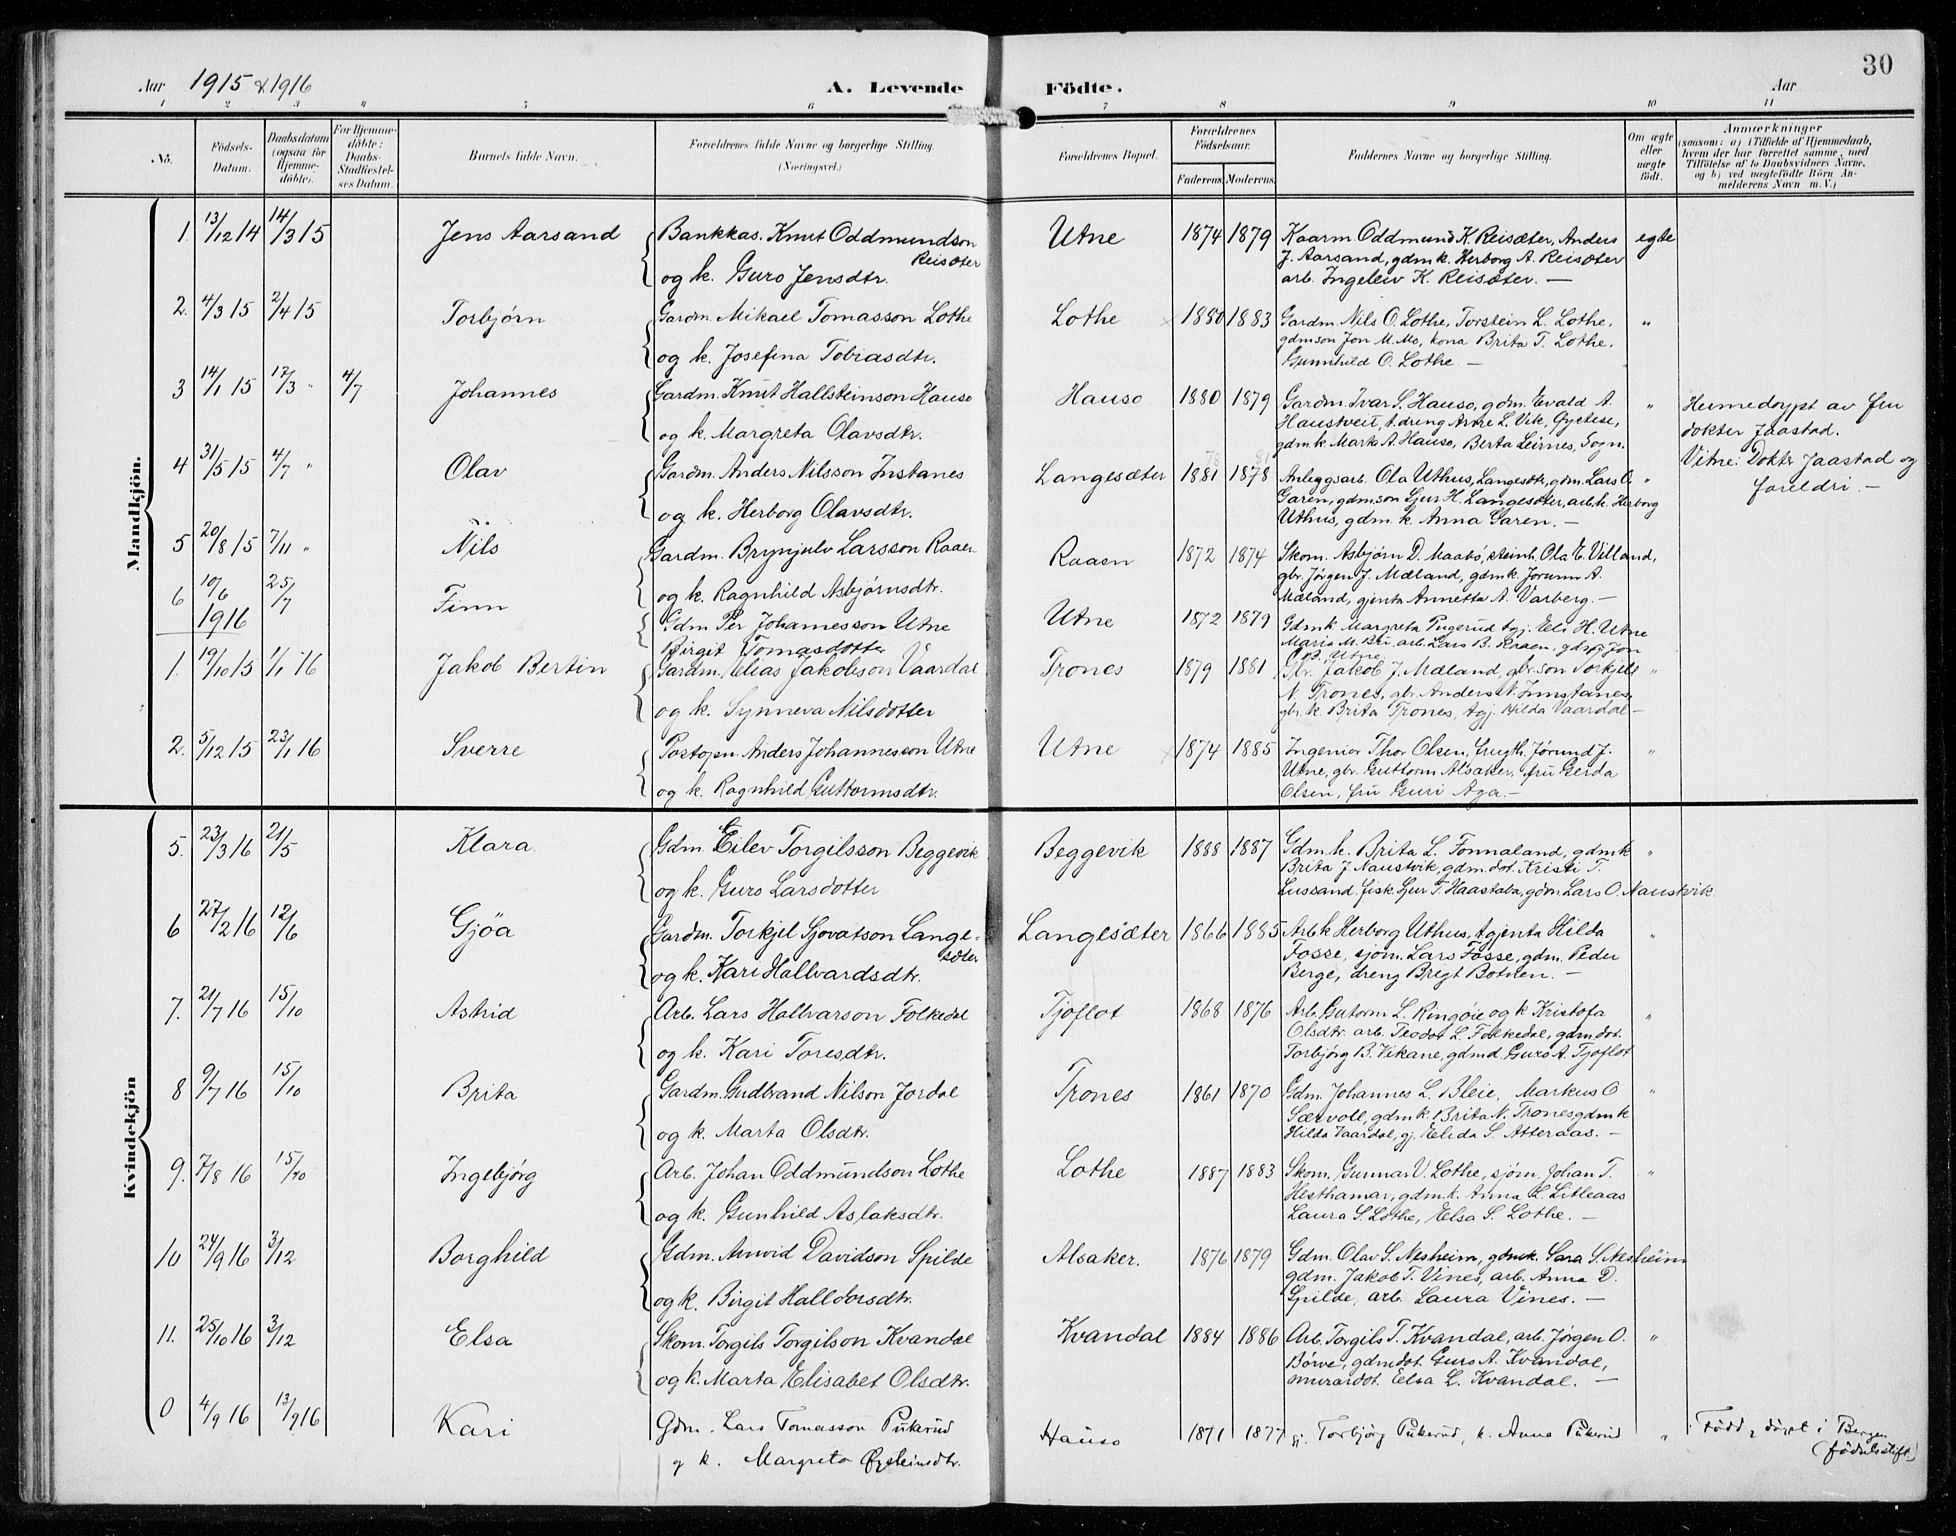 30
Aar 1915 & 1916 A. Levende Födte. Aar
1 2 3 " 5 6 7 8 9 10 11
No.
Födsels-
Datum.
Daabsdatum
(ogsaa for
Hjemme-
döbte).
For Hjemme-
döbte:
Daabs-
Stadfæstel-
ses Datum.
Barnets fulde Navn.
Forældrenes fulde Navne og borgerlige Stilling.
(Næringsvei.)
Forældrenes Bopæl.
Forældrenes
Födselsaar.
Faderens. Moderens.
Faddernes Navne og borgerlige Stilling.
Om ægte
eller
uægte
födt.
Anmærkninger
(saasom: a) i Tilfælde af Hjemmedaab,
hvem der har forrettet samme, med
Tilföielse af to Daabsvidners Navne,
og b) ved uægtefödte Börn An-
melderens Navn m. V.)
Mandkjön.
1. 13/12 14 14/3 15 Jens Aarsand Bankkas. Knut Oddmundson
Reisæter
og k. Guro Jensdtr.
Utne 1874 1879 Kaarm. Oddmund K. Reisæter, Anders
J. Aarsand, gdmk. Herborg A. Reisæter
arb. Ingeleiv K. Reisæter. —
egte
2. 4/3 15 2/4 15 Torbjørn Gardm. Mikael Tomasson Lothe
og k. Josefina Tobiasdtr.
Lothe 1880 1883 Gardm. Nils O. Lothe, Torstein L. Lothe,
gdmson Jon M. Mo, kona Brita T. Lothe,
Gunnhild O. Lothe. —
"
3 14/1 15 12/3 " 4/7 Johannes Gardm. Knut Hallsteinson Hauso
og k. Margreta Olavsdtr.
Hauso 1880 1879 Gardm. Ivar S. Hauso, gdm. Evald A.
Haustveit, t.dreng Arne L. Vik, Gyetese,
gdmk Marta A. Hauso, Berta Leirnes, Sogn.
"
Heimedøypt av fru
dokter Jaastad.
Vitne: Dokter Jaastad og
foreldri. —
4 31/5 15 4/7 " Olav Gardm. Anders Nilsson Instanes
og k. Herborg Olavsdtr.
Langesæter 1881 1878 Anleggsarb. Ola Uthus, Langesæter, gdm. Lars O.
Garen, gdmson Sjur H. Langesæter, arb.k. Herborg
Uthus, gdm.k. Anna Garen. —
"
5 20/8 15 7/11 " Nils Gardm. Brynjulv Larsson Raaen
og k. Ragnhild Asbjørnsdtr.
Raaen 1872 1874 Skom. Asbjørn D. Maabø, steinh. Ola E. Villand,
gbr. Jørgen J. Mæland, gdmk. Jorunn A.
Mæland, gjenta Annetta A. Varberg. —
6 10/6 25/7 Finn Gdm Per Johannesson Utne
Birgit Tomasdotter
Utne 1872 1879 Gdmk Margreta Pugerud tgj. Eli H. Utne
Maria M. Bu arb. Lars B. Raaen, gdsg Jon
B. Utne
1916
1. 19/10 15 1/1 16 Jakob Bertin Gardm. Elias Jakobson Vaardal
og k. Synneva Nilsdotter
Trones 1879 1881 Gbr. Jakob J. Mæland, gbr.son Torkjell
N. Trones, gbr. Anders N. Instanes,
gbr.k. Brita Trones, tgj. Hilda Vaardal —
"
2. 5/12 15 23/1 16 Sverre Postopn. Anders Johannesson Utne
og k. Ragnhild Guttormsdtr.
Utne 1874 1885 Ingeniør Thor Olsen, frugth. Jørund J.
Utne, gbr. Guttorm Alsaker, fru Gerda
Olsen, fru Guri Aga. —
"
Kvindekjön
5. 23/3 16 21/5 Klara Gdm. Eilev Torgilsson Beggevik
og k. Guro Larsdotter
Beggevik 1888 1887 Gdm.k. Brita L. Tonnaland, gdmk
Brita J. Naustvik, gdm.dot. Kristi T.
Lussand. fisk. Sjur T. Haastabø, gdm. Lars O. Naustvik.
"
6 27/2 16 12/6 Gjöa Gardm. Torkjel Sjovatson Lange-
sæter
og k. Kari Hallvardsdtr.
Langesæter 1866 1885 Arb.k Herborg Uthus, tgjenta Hilda
Fosse, sjøm. Lars Fosse, gdm. Peder
Berge, dreng Brigt Botnen. —
"
7. 21/7 16 15/10 Astrid Arb. Lars Hallvarson Folkedal
og k. Kari Toresdtr.
Tjoflot 1868 1876 Arb. Gutorm L. Ringøie og k Kristofa
Olsdtr. arb. Teodot L. Folkedal, gdmdot.
Torbjørg B. Vikane, gdmd. Guro A. Tjoflot
"
8 9/7 16 15/10 Brita Gardm. Gudbrand Nilson Jordal
og k. Marta Olsdtr.
Trones 1861 1870 Gdm. Johannes L. Bleie, Markus O
Særvoll, gdmk. Brita N. Trones gdmk
Hilda Vaardal, gj. Elida S. Atteraas. —
"
9. 7/8 16 15/10 Ingebjørg Arb. Johan Oddmundson Lothe
og k. Gunhild Aslaksdtr.
Lothe 1887 1883 Skom. Gunnar V. Lothe, sjøm. Johan T.
Hesthamar, gdm.k. Anna L. Litleaas
Laura S. Lothe, Elsa S. Lothe. —
"
10 24/9 16 3/12 Borghild Gdm. Arnvid Davidson Spilde
og k. Birgit Halldorsdtr.
Alsaker. 1876 1879 Gdm. Olav S. Nesheim, gdmk. Sara S. Nesheim
gdm. Jakob T. Vines, arb. Anna D.
Spilde, arb. Laura Vines. —
11. 25/10 16 3/12 Elsa Skom. Torgils Torgilson Kvandal
og k. Marta Elisabet Olsdtr.
Kvandal 1884 1886 Arb. Torgils T. Kvandal, arb. Jørgen O.
Børve, gdmdot. Guro A. Kvandal,
murardot. Elsa L. Kvandal. —
"
0 4/9 16 13/9 16 Kari Gdm. Lars Tomasson Pukerud
g k. Margreta Øysteinsdtr.
Hauso 1871 1877 gj. Torbjørg Pukerud, k. Anna Pukerud
"
Fødd, døypt i Bergen
(fødselsstift.)